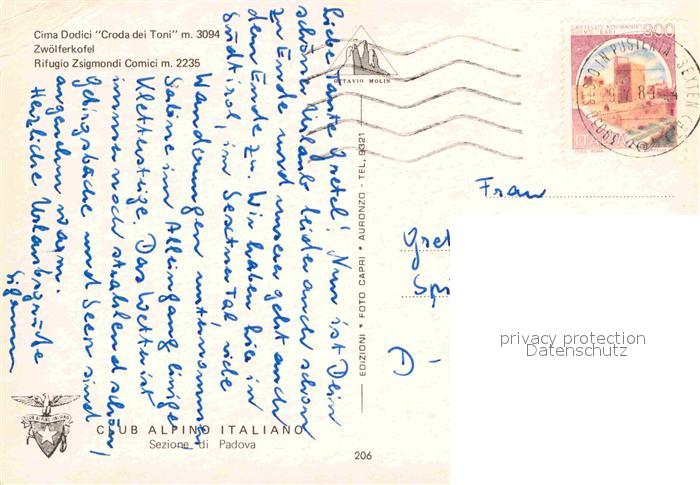 Cima Dodici "Croda dei Toni" m. 3094
Zwölferkofel
Rifugio Zsigmondi Comici m. 2235
OTTAVIO MOLIN
CASTELLO NORMANNO
SVEVO BARI
300
ITALIA
Liebe Tante Gretel! Nun ist Dein
schöner Urlaub leider auch schon
zu Ende und unserer geht auch
dem Ende zu. Wir haben hier in
Südtirol, im Sextner Tal viele
Wanderungen unternommen,
Simone im Alleingang einige
Klettersteige. Das Wetter ist
immer noch strahlend schön,
Gebirgsbäche und Seen sind
angenehm warm.
Herzliche Urlaubsgrüße
EDIZIONI * FOTO CAPRI * AURONZO - TEL. 9321
Frau
Gret
Spi
D -
privacy protection
Datenschutz
CLUB ALPINO ITALIANO
CLUB ALPINO ITALIANO
Sezione di Padova
206